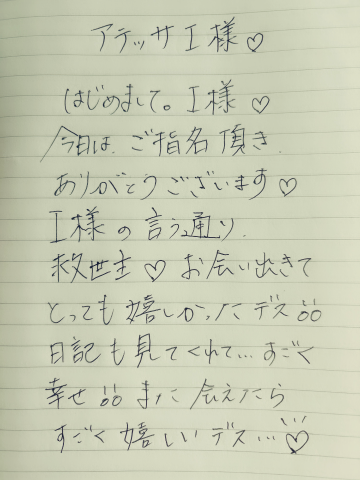 アテッサI様♡
はじめまして。I様♡
今日は、ご指名頂き
ありがとうございます♡
I様の言う通り、
救世主♡お会い出きて
とっても嬉しかったデス
日記も見てくれて…すごく
幸せ また会えたら
すごく嬉しいデス…♡